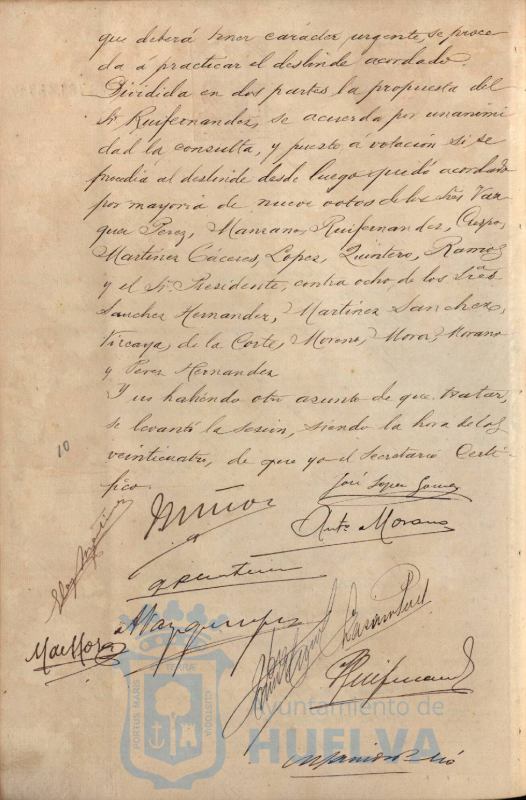 que deberá tener carácter urgente, se proce
da á practicar el deslinde acordado.
Dividida en dos partes la propuesta del
Sr. Ruifernandez, se acuerda por unanimi
dad la consulta, y puesto á votación si se
procedia al deslinde desde luego quedó acordado
por mayoria de nueve votos de los Sres Vaz
quez Perez, Manzano, Ruifernandez, Crespo,
Martinez Cáceres, Lopez, Quintero, Ramos
y el Sr. Presidente, contra ocho, de los Sres
Sanchez Hernandez, Martinez Sanchez,
Vizcaya, de la Corte, Moreno, Mora, Morano
y Perez Hernandez.
Y no habiendo otro asunto de que tratar,
se levantó la sesión, siendo la hora de las
veinticuatro, de que yo el Secretario Certi-
fico.
10
José Lopez Gomez
Muñoz
Anto Morano
A Vazquez
Mac Mora
Ruifernandez
PORTUS MARIS
ET TERRÆ
CUSTODIA
Ayuntamiento de
HUELVA